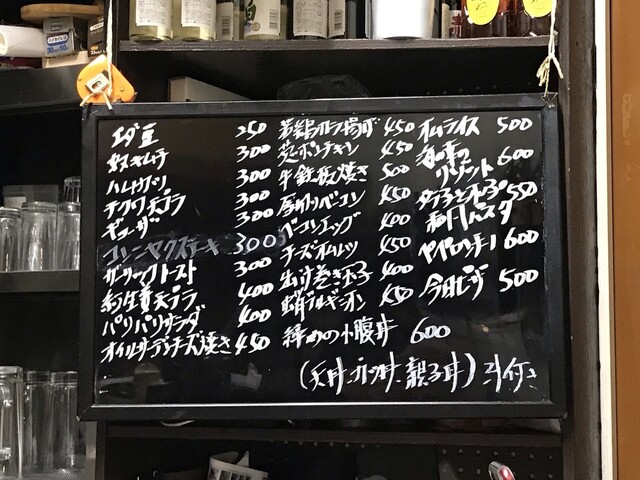 エダ豆 250
奴キムチ 300
ハムカツ 300
チクワ天プラ 300
ギョーザ 300
コンニャクステーキ 300
ガーリックトースト 300
紅生姜天プラ 400
パリパリサラダ 400
オイルサーディンチーズ焼き 450
若鶏 揚げ 450
ポンチキン 450
牛鉄板焼き 500
厚切ベーコン 450
ベーコンエッグ 400
チーズオムレツ 450
出汁巻き玉子 400
蛸 450
締めの小腹丼 600
(天丼、カツ丼、親子丼)汁付き
オムライス 500
海の幸
リゾット 600
タラ子と 550
パスタ
ペペロンチーノ 600
今日ピザ 500